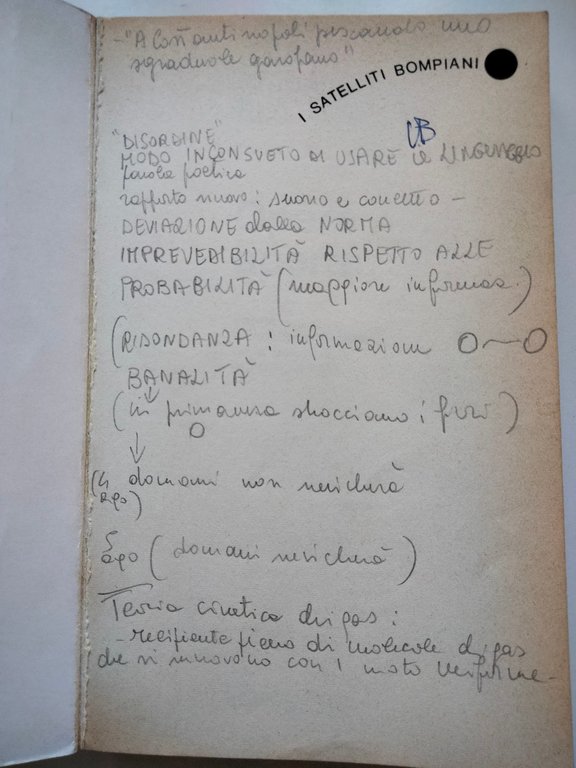 - "A Costantinopoli pescando uno
sgradevole garofano"
I SATELLITI BOMPIANI
"DISORDINE"
MODO INCONSUETO DI USARE il LINGUAGGIO
parola poetica
rapporto nuovo: suono e concetto -
DEVIAZIONE dalla NORMA
IMPREVEDIBILITÀ RISPETTO ALLE
PROBABILITÀ (maggiore informaz.)
(RIDONDANZA: informazione O~O
BANALITÀ
(in primavera sbocciano i fiori)
O
(4 ago) domani non nevicherà
5 ago (domani nevicherà)
Teoria cinetica dei gas:
- recipiente pieno di molecole di gas
che si muovono con 1 moto uniforme -